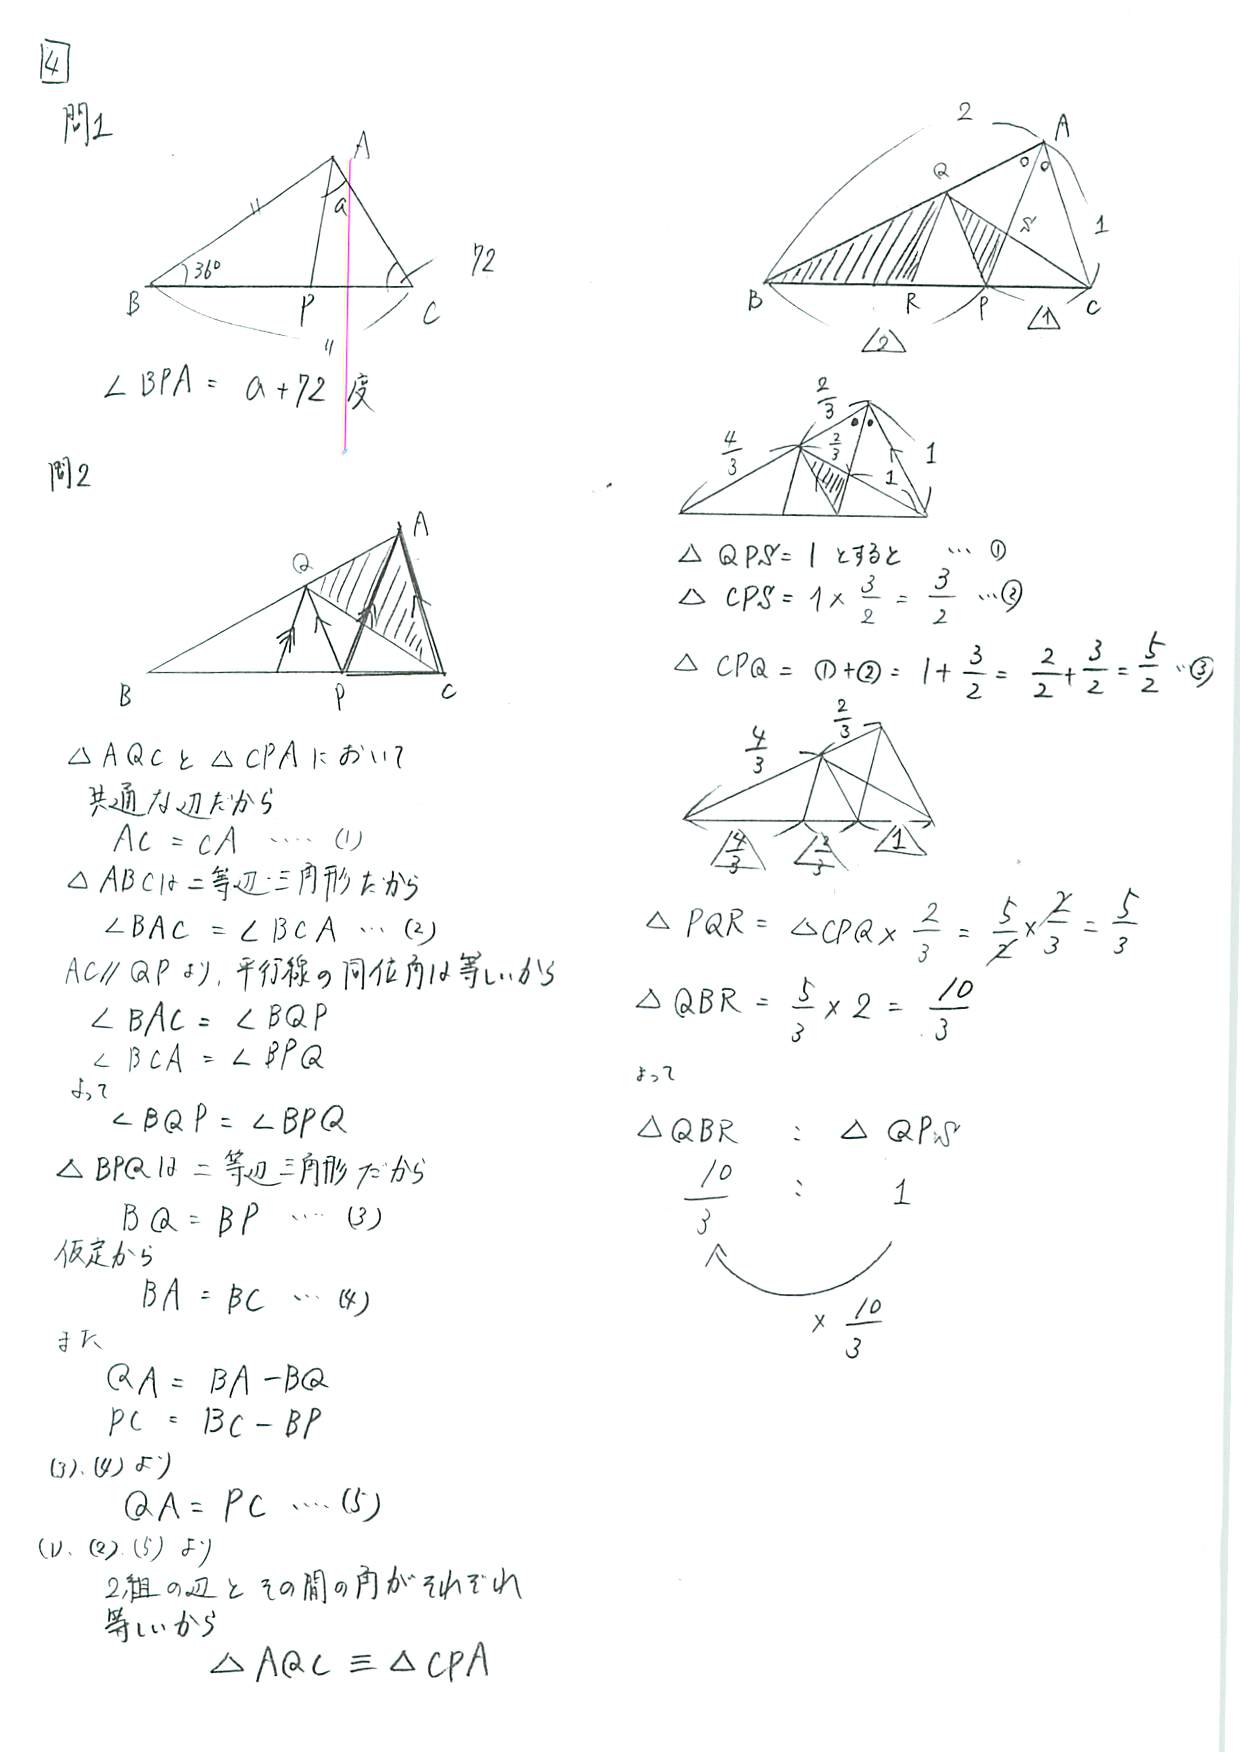 4
問1
A
a
36°
72
B
P
C
〃
∠BPA = a+72 度
問2
A
Q
B
P
C
△AQCと△CPAにおいて
共通な辺だから
AC = CA ‥‥ (1)
△ABCは二等辺三角形だから
∠BAC = ∠BCA … (2)
AC∥QPより、平行線の同位角は等しいから
∠BAC = ∠BQP
∠BCA = ∠BPQ
よって
∠BQP = ∠BPQ
△BPQは二等辺三角形だから
BQ = BP ‥‥ (3)
仮定から
BA = BC … (4)
また
QA = BA - BQ
PC = BC - BP
(3)、(4)より
QA = PC ‥‥ (5)
(1)、(2)、(5)より
2組の辺とその間の角がそれぞれ
等しいから
△AQC ≡ △CPA
2
A
Q
S
1
B
R
P
C
2
1
2/3
4/3
2/3
1
1
△QPS = 1とすると … ①
△CPS = 1× 3/2 = 3/2 … ②
△CPQ = ①+② = 1+ 3/2 = 2/2 + 3/2 = 5/2 … ③
2/3
4/3
4/3
2/3
1
△PQR = △CPQ× 2/3 = 5/2 × 2/3 = 5/3
△QBR = 5/3 × 2 = 10/3
よって
△QBR : △QPS
10/3 : 1
× 10/3